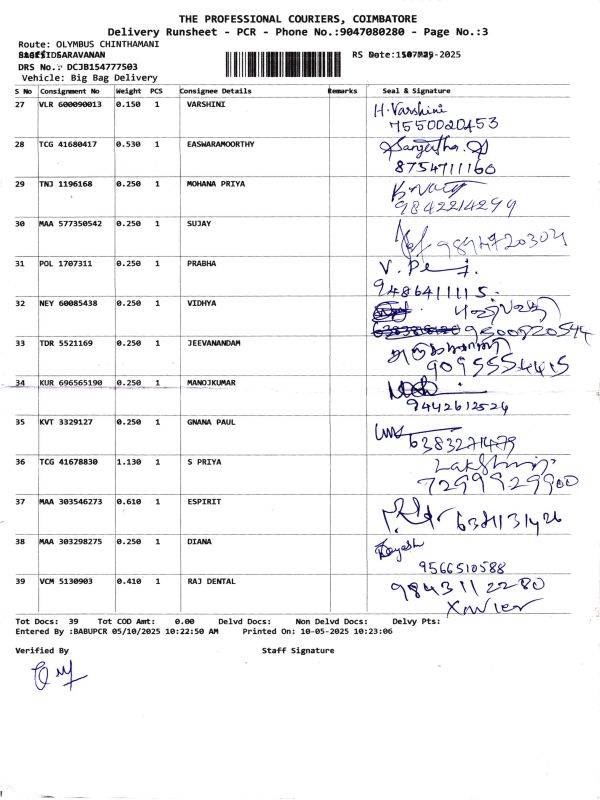 THE PROFESSIONAL COURIERS, COIMBATORE
Delivery Runsheet - PCR - Phone No.:9047080280 - Page No.:3
Route: OLYMBUS CHINTHAMANI
DRS No.: DCJB154777503
RS Date: -2025
Vehicle: Big Bag Delivery
S No Consignment No Weight PCS Consignee Details Remarks Seal & Signature
27 VLR 600090013 0.150 1 VARSHINI H.Varshini
7550020453
28 TCG 41680417 0.530 1 EASWARAMOORTHY Sangeetha
8754711160
29 TNJ 1196168 0.250 1 MOHANA PRIYA
9842214299
30 MAA 577350542 0.250 1 SUJAY
31 POL 1707311 0.250 1 PRABHA
9486411115
32 NEY 60085438 0.250 1 VIDHYA
33 TDR 5521169 0.250 1 JEEVANANDAM
34 KUR 696565190 0.250 1 MANOJKUMAR
9442612524
35 KVT 3329127 0.250 1 GNANA PAUL
6383271479
36 TCG 41678830 1.130 1 S PRIYA
7299929900
37 MAA 303546273 0.610 1 ESPIRIT
6381131426
38 MAA 303298275 0.250 1 DIANA
9566510588
39 VCM 5130903 0.410 1 RAJ DENTAL 9843112280
Xavier
Tot Docs: 39 Tot COD Amt: 0.00 Delvd Docs: Non Delvd Docs: Delvy Pts:
Entered By :BABUPCR 05/10/2025 10:22:50 AM Printed On: 10-05-2025 10:23:06
Verified By Staff Signature